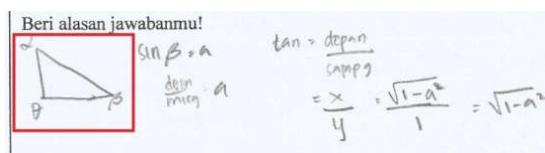 Beri alasan jawabanmu!
α
θ β
sin β = a
depan / miring = a
tan = depan / samping
= x / y = √1-a² / 1 = √1-a²